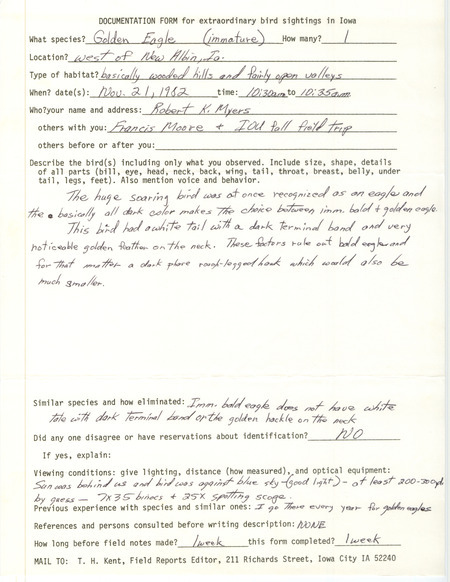 DOCUMENTATION FORM for extraordinary bird sightings in Iowa
What species? Golden Eagle (immature) How many? 1
Location? west of New Albin, Ia.
Type of habitat? basically wooded hills and fairly open valleys
When? date(s): Nov. 21, 1982 time: 10:30am to 10:35am
Who? your name and address: Robert K. Myers
others with you: Francis Moore + IOU fall field trip
others before or after you:
Describe the bird(s) including only what you observed. Include size, shape, details
of all parts (bill, eye, head, neck, back, wing, tail, throat, breast, belly, under
tail, legs, feet). Also mention voice and behavior.
The huge soaring bird was at once recognized as an eagle and
the basically all dark color makes the choice between imm. bald + golden eagle.
This bird had a white tail with a dark terminal band and very
noticeable golden feather on the neck. These factors rule out bald eagle and
for that matter a dark phase rough-legged hawk which would also be
much smaller.
Similar species and how eliminated: Imm. bald eagle does not have white
tale with dark terminal band or the golden hackle on the neck
Did any one disagree or have reservations about identification? NO
If yes, explain:
Viewing conditions: give lighting, distance (how measured), and optical equipment:
Sun was behind us and bird was against blue sky - (good light) - at least 200-300yds
by guess — 7x35 binocs + 25x spotting scope.
Previous experience with species and similar ones: I go there every year for golden eagles
References and persons consulted before writing description: NONE
How long before field notes made? 1 week this form completed? 1 week
MAIL TO: T. H. Kent, Field Reports Editor, 211 Richards Street, Iowa City IA 52240